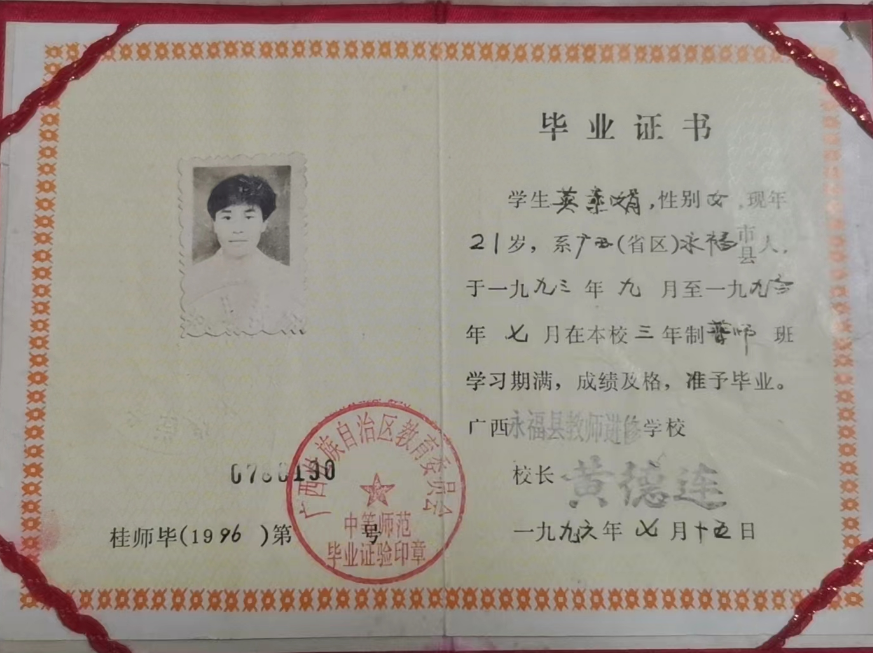 毕业证书
学生 娟，性别女，现年
21岁，系广西(省区)永福市县人，
于一九九三年九月至一九九六
年七月在本校三年制普师班
学习期满，成绩及格，准予毕业。
广西永福县教师进修学校
校长 黄德连
一九九六年七月十五日
广西壮族自治区教育委员会
中等师范
毕业证验印章
桂师毕(1996)第 号